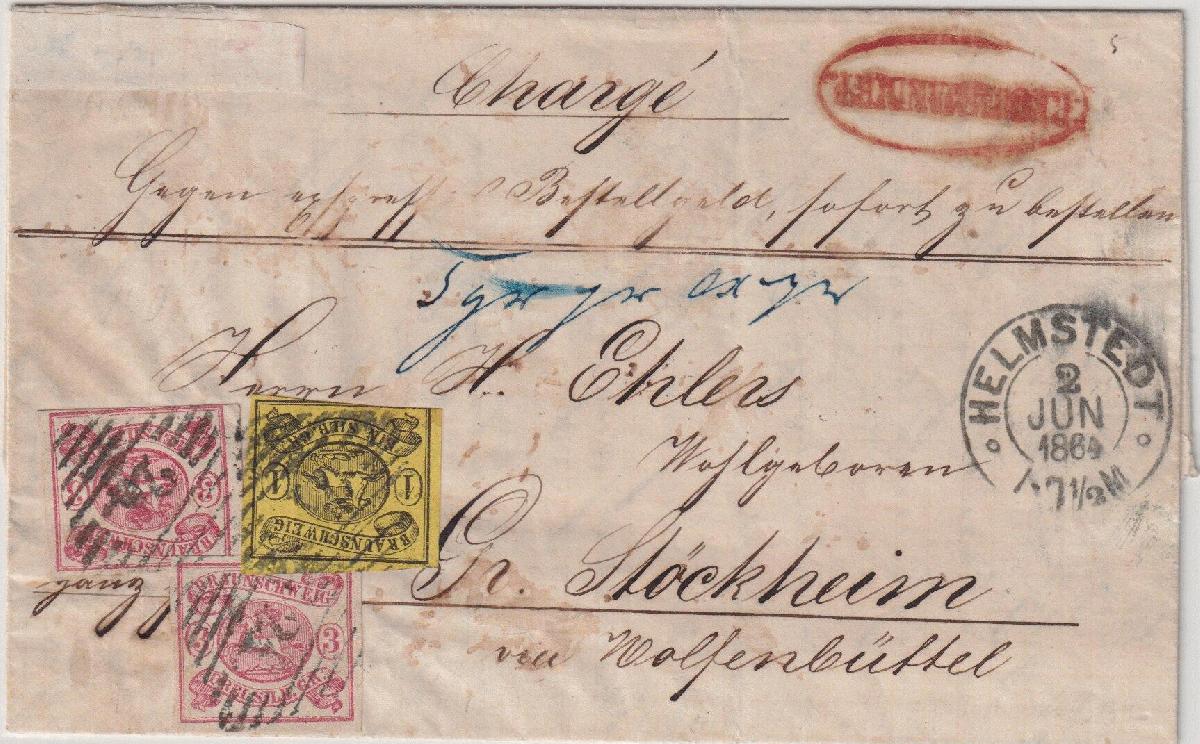 5
Chargé
Gegen express Bestellgeld, sofort zu bestellen
Herrn H. Ehlers
Wohlgeboren
Gr. Stöckheim
via Wolfenbüttel
ganz
HELMSTEDT
2
JUN
1864
7½
EIN SILB. GR.
1 1
BRAUNSCHWEIG
3
BRAUNSCHWEIG
BRAUNSCHWEIG
3